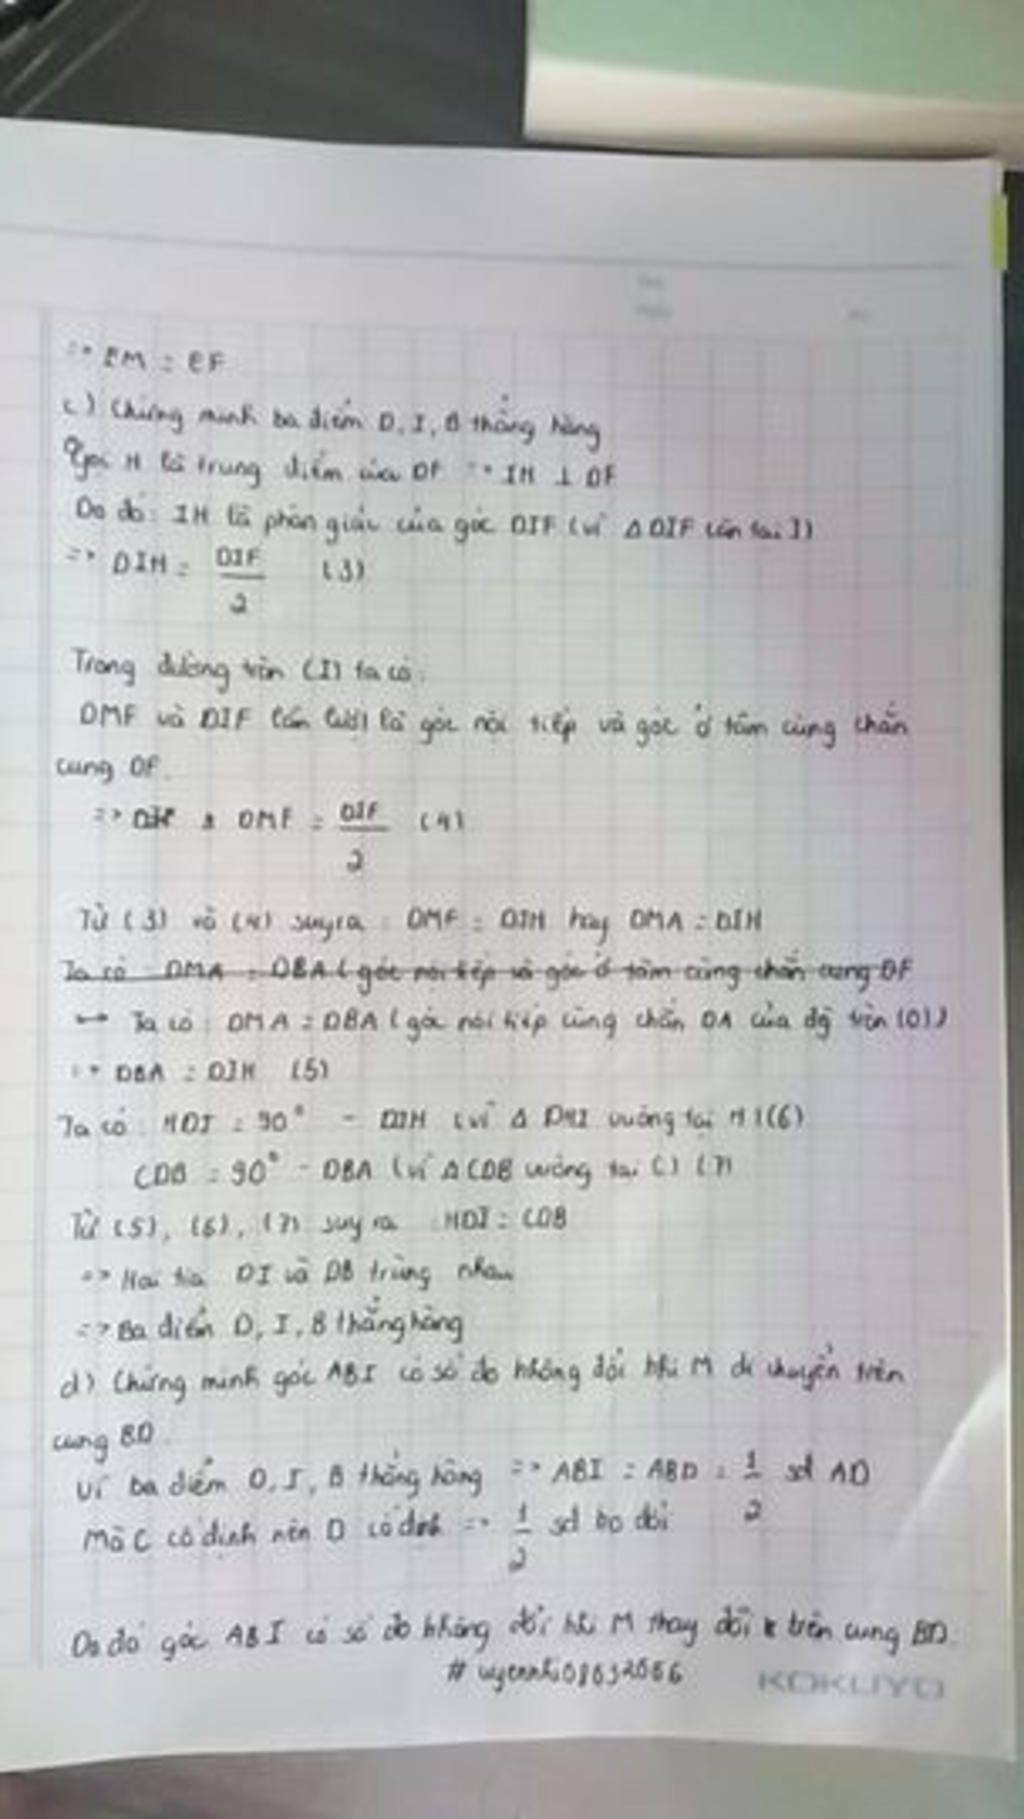 => EM = EF
c) Chứng minh ba điểm D, I, B thẳng hàng
Gọi H là trung điểm của DF => IH ⊥ DF
Do đó: IH là phân giác của góc DIF (vì Δ DIF cân tại I)
=> DIH = DIF / 2 (3)
Trong đường tròn (I) ta có:
DMF và DIF lần lượt là góc nội tiếp và góc ở tâm cùng chắn
cung DF.
=> DMF = DIF / 2 (4)
Từ (3) và (4) suy ra: DMF = DIH hay DMA = DIH
Ta có DMA = DBA (góc nội tiếp và góc ở tâm cùng chắn cung DF
Ta có: DMA = DBA (góc nội tiếp cùng chắn DA của đg tròn (O))
=> DBA = DIH (5)
Ta có: HDI = 90° - DIH (vì Δ DHI vuông tại H) (6)
CDB = 90° - DBA (vì Δ CDB vuông tại C) (7)
Từ (5), (6), (7) suy ra: HDI = CDB
=> Hai tia DI và DB trùng nhau
=> Ba điểm D, I, B thẳng hàng
d) Chứng minh góc ABI có số đo không đổi khi M di chuyển trên
cung BD.
Vì ba điểm D, I, B thẳng hàng => ABI = ABD = 1/2 sđ AD
Mà C cố định nên D cố định => 1/2 sđ
Do đó góc ABI có số đo không đổi khi M thay đổi trên cung BD.
KOKUYO